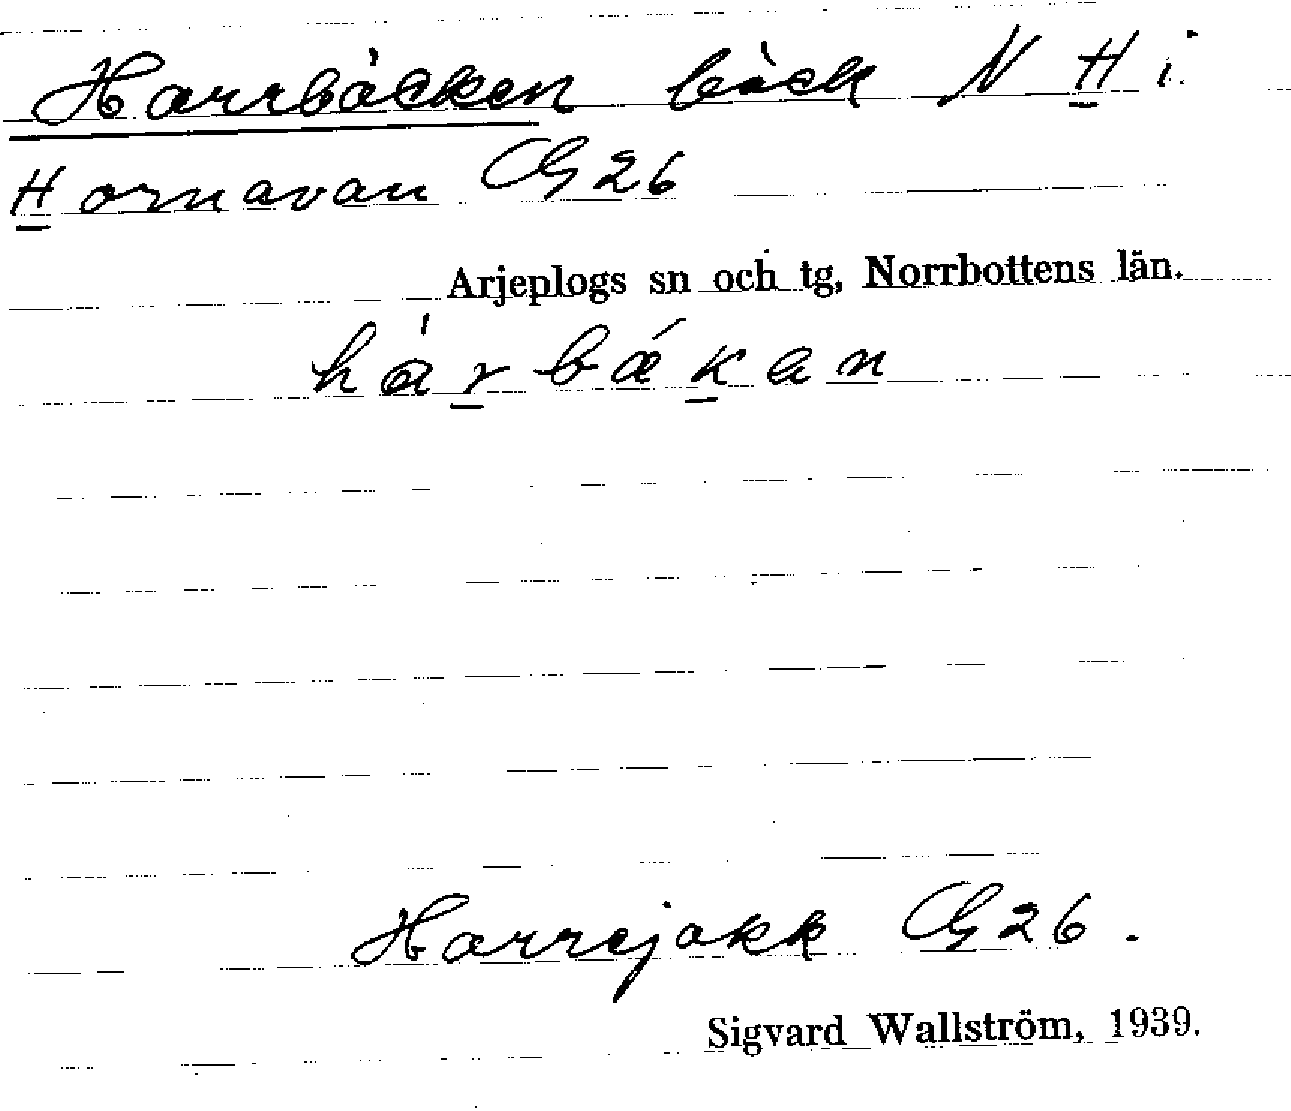 Harrbäcken bäck N H i.
Hornavan G26
Arjeplogs sn och tg, Norrbottens län.
hárbækan
Harrejokk G26.
Sigvard Wallström, 1939.